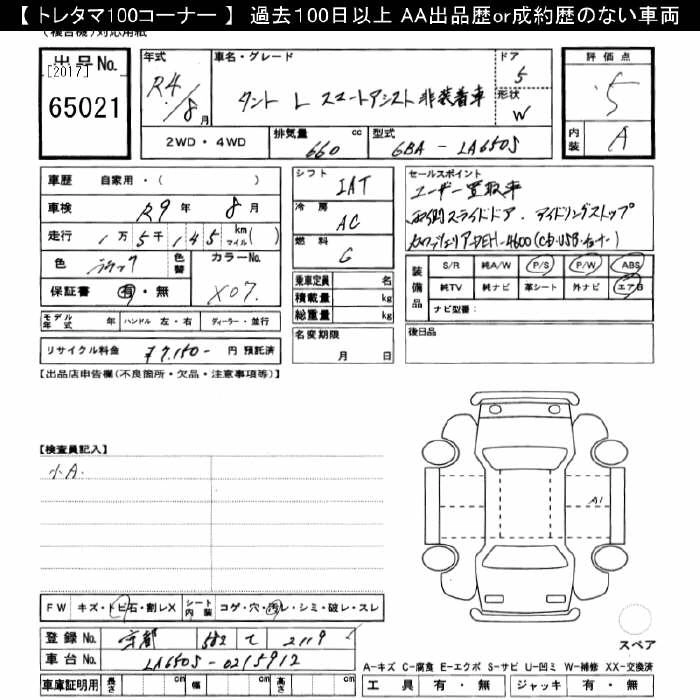 【 トレタマ100コーナー 】 過去100日以上 AA出品歴or成約歴のない車両
(複合機)対応用紙
出品No.
[2017]
65021
年式
R4/8月
車名・グレード
タント L スマートアシスト非装着車
ドア
5
形状
W
評価点
5
内装
A
2WD・4WD
排気量
660
cc
型式
6BA - LA650S
車歴 自家用・( )
車検 R9年 8月
走行 1万5千145 km マイル( )
色 ブラック
色替
カラーNo.
X07
保証書 有・無
シフト
IAT
冷房
AC
燃料
G
乗車定員 名
積載量 kg
総重量 kg
名変期限
月 日
セールスポイント
ユーザー買取車
両側スライドドア. アイドリングストップ
DEH-4600(CD・USB
装備品
S/R 純A/W P/S P/W ABS
純TV 純ナビ 革シート 外ナビ エアB
ナビ型番:
後日品
モデル年式 年 ハンドル 左・右 ディーラー・並行
リサイクル料金 ¥7,150- 円 預託済
【出品店申告欄(不良箇所・欠品・注意事項等)】
【検査員記入】
小A.
A1
FW キズ・トビ石・割レX
シート内装 コゲ・穴・汚レ・シミ・破レ・スレ
登録No. 京都 582 て 2119
車台No. LA650S-0215912
スペア
A-キズ C-腐食 E-エクボ S-サビ U-凹ミ W-補修 XX-交換済
車庫証明用 長さ cm 幅 cm 高さ cm
工具 有・無 ジャッキ 有・無